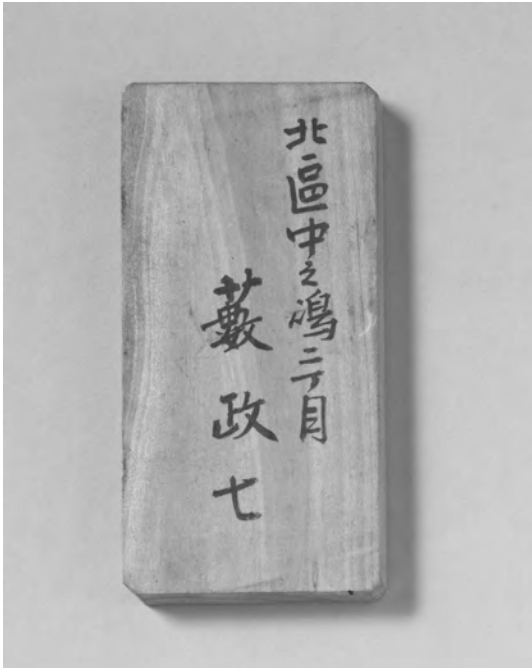 北區中之嶋二丁目
藪政七